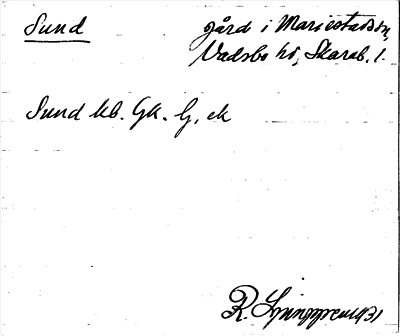 Sund gård i Mariestads sn,
Vadsbo hd, Skarab. l.
Sund kb. Gk. G. ek
R. Ljunggren 1931